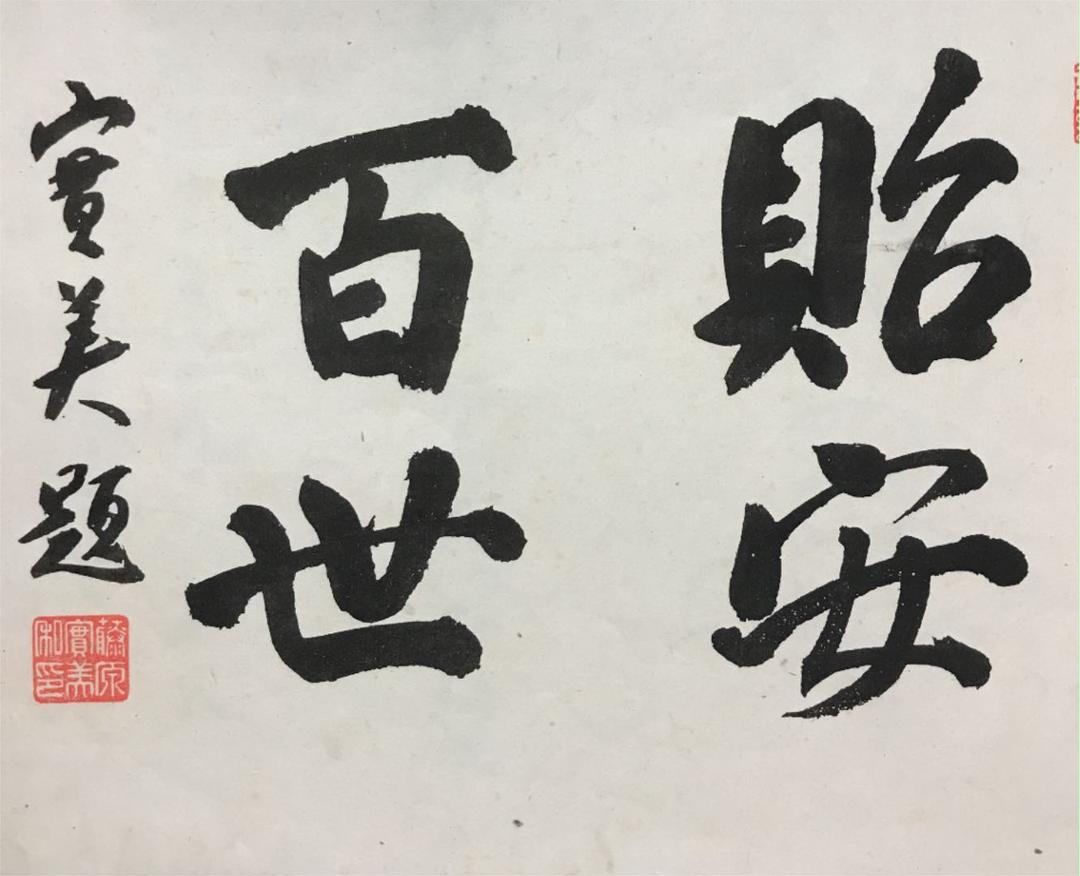 貽安
百世
實美題
藤原
實美
私印